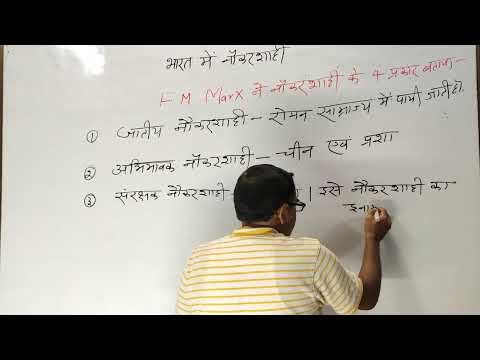 भारत में नौकरशाही
F M Marx ने नौकरशाही के 4 प्रकार बताए-
① जातीय नौकरशाही - रोमन साम्राज्य में पायी जाती हो.
② अभिभावक नौकरशाही - चीन एवं प्रशा
③ संरक्षक नौकरशाही - । इसे नौकरशाही का